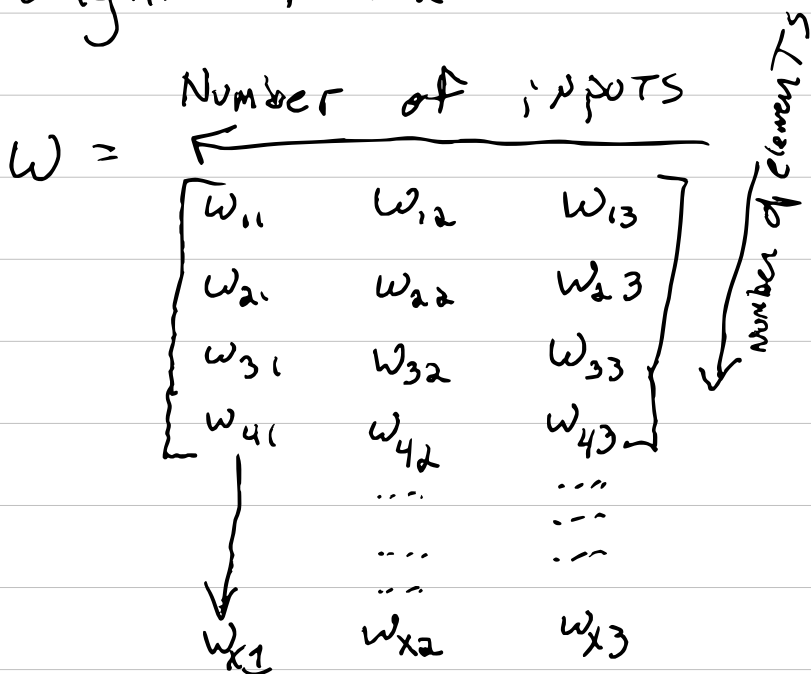 Number of inputs
W =
Number of elements
W11 W12 W13
W21 W22 W23
W31 W32 W33
W41 W42 W43
.... ....
---
.... ---
---
Wx1 Wx2 Wx3